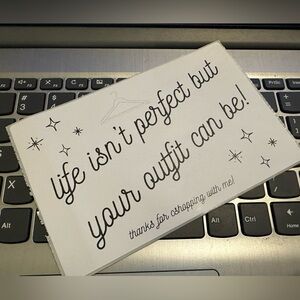 life isn't perfect but
your outfit can be!
thanks for cshopping with me!
Alt
Ctrl